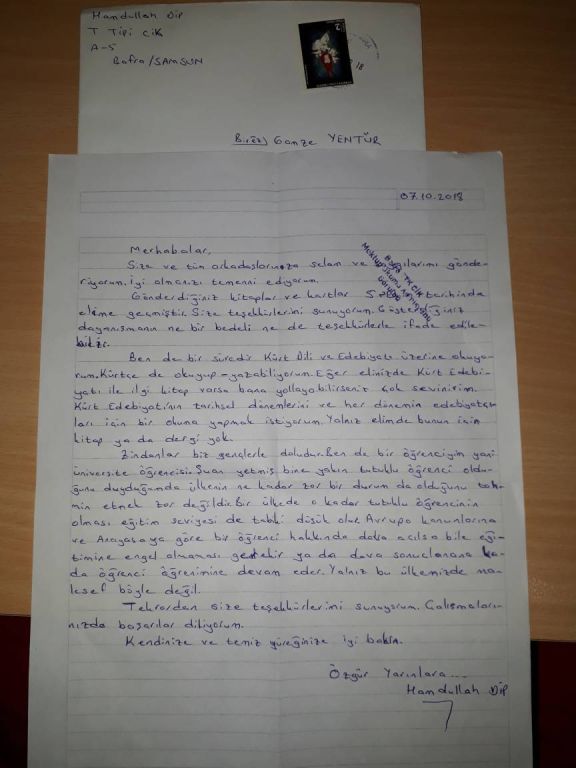 Hamdullah Dip
T Tipi Cik
A-5
Bafra/SAMSUN
2
18
Birêz) Gamze YENTÜR
07.10.2018
Merhabalar,
Size ve tüm arkadaşlarınıza selam ve saygılarımı gönde-
riyorum. İyi olmanızı temenni ediyorum.
Gönderdiğiniz kitaplar ve kartlar 5 tarihinde
elime geçmiştir. Size teşekkürlerimi sunuyorum. Gösterdiğiniz
dayanışmanın ne bir bedeli ne de teşekkürlerle ifade edile-
bilir.
Ben de bir süredir Kürt Dili ve Edebiyatı üzerine okuyo-
rum. Kürtçe de okuyup-yazabiliyorum. Eğer elinizde Kürt Edebi-
yatı ile ilgi kitap varsa bana yollayabilirseniz çok sevinirim.
Kürt Edebiyatı'nın tarihsel dönemlerini ve her dönemin edebiyatçı-
ları için bir okuma yapmak istiyorum. Yalnız elimde bunun için
kitap ya da dergi yok.
Zindanlar biz gençlerle doludur. Ben de bir öğrenciyim yani
üniversite öğrencisi. Şuan yetmiş bine yakın tutuklu öğrenci oldu-
ğunu duyduğumda ülkenin ne kadar zor bir durum da olduğunu tah-
min etmek zor değildir. Bir ülkede o kadar tutuklu öğrencinin
olması eğitim seviyesi de tabiki düşük olur. Avrupa kanunlarına
ve Anayasaya göre bir öğrenci hakkında dava açılsa bile eği-
timine engel olmaması gerekir ya da dava sonuçlanana ka-
da öğrenci öğrenimine devam eder. Yalnız bu ülkemizde ma-
lesef böyle değil.
Tekrardan size teşekkürlerimi sunuyorum. Çalışmaları-
nızda başarılar diliyorum.
Kendinize ve temiz yüreğinize iyi bakın.
Özgür Yarınlara...
Hamdullah DİP